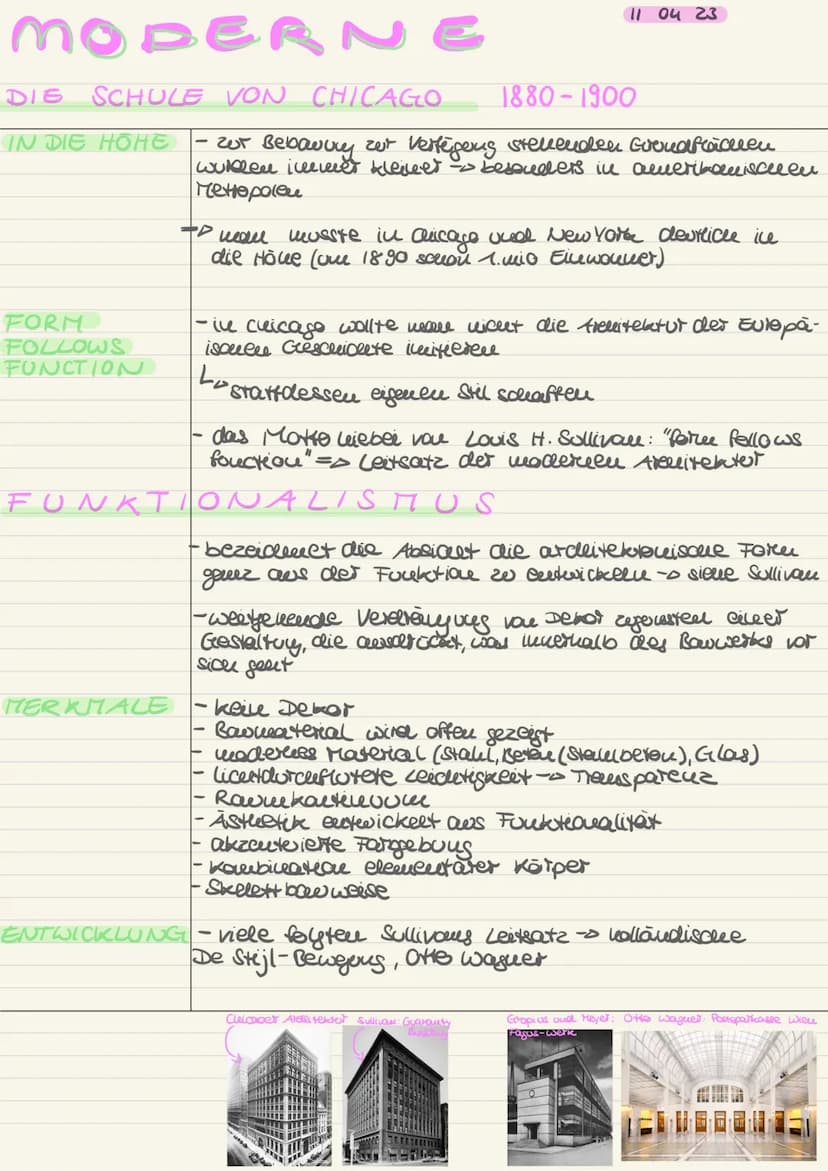 MODERNE
11 04 23
DIE SCHULE VON CHICAGO 1880-1900
IN DIE HÖHE
- zur Bebauung zur Verfügung stehenden Grundflächen
wurden immer kleiner -> besonders in amerikanischen
Metropolen
=> man musste in Chicago und New York deutlich in
die Höhe (um 1890 schon 1. mio Einwohner)
FORM
FOLLOWS
FUNCTION
- in Chicago wollte man nicht die Architektur der Europä-
ischen Geschichte imitieren
↳ stattdessen eigenen Stil schaffen
- das Motto hierbei von Louis H. Sullivan: "form follows
function" => Leitsatz der modernen Architektur
FUNKTIONALISMUS
- bezeichnet die Absicht die architektonische Form
ganz aus der Funktion zu entwickeln -> siehe Sullivan
- weitgehende Verdrängung von Dekor zugunsten einer
Gestaltung, die ausdrückt, was innerhalb des Bauwerks vor
sich geht
MERKMALE
- kein Dekor
- Baumaterial wird offen gezeigt
- modernes Material (Stahl, Beton (Stahlbeton), Glas)
- lichtdurchflutete Leichtigkeit -> Transparenz
- Raumkontinuum
- Ästhetik entwickelt aus Funktionalität
- akzentuierte Farbgebung
- Kombination elementarer Körper
- Skelettbauweise
ENTWICKLUNG
- viele folgten Sullivans Leitsatz -> holländische
De Stijl-Bewegung, Otto Wagner
Chicagoer Architektur
Sullivan: Guaranty
Building
Gropius und Meyer:
Fagus-Werk
Otto Wagner: Postsparkasse Wien